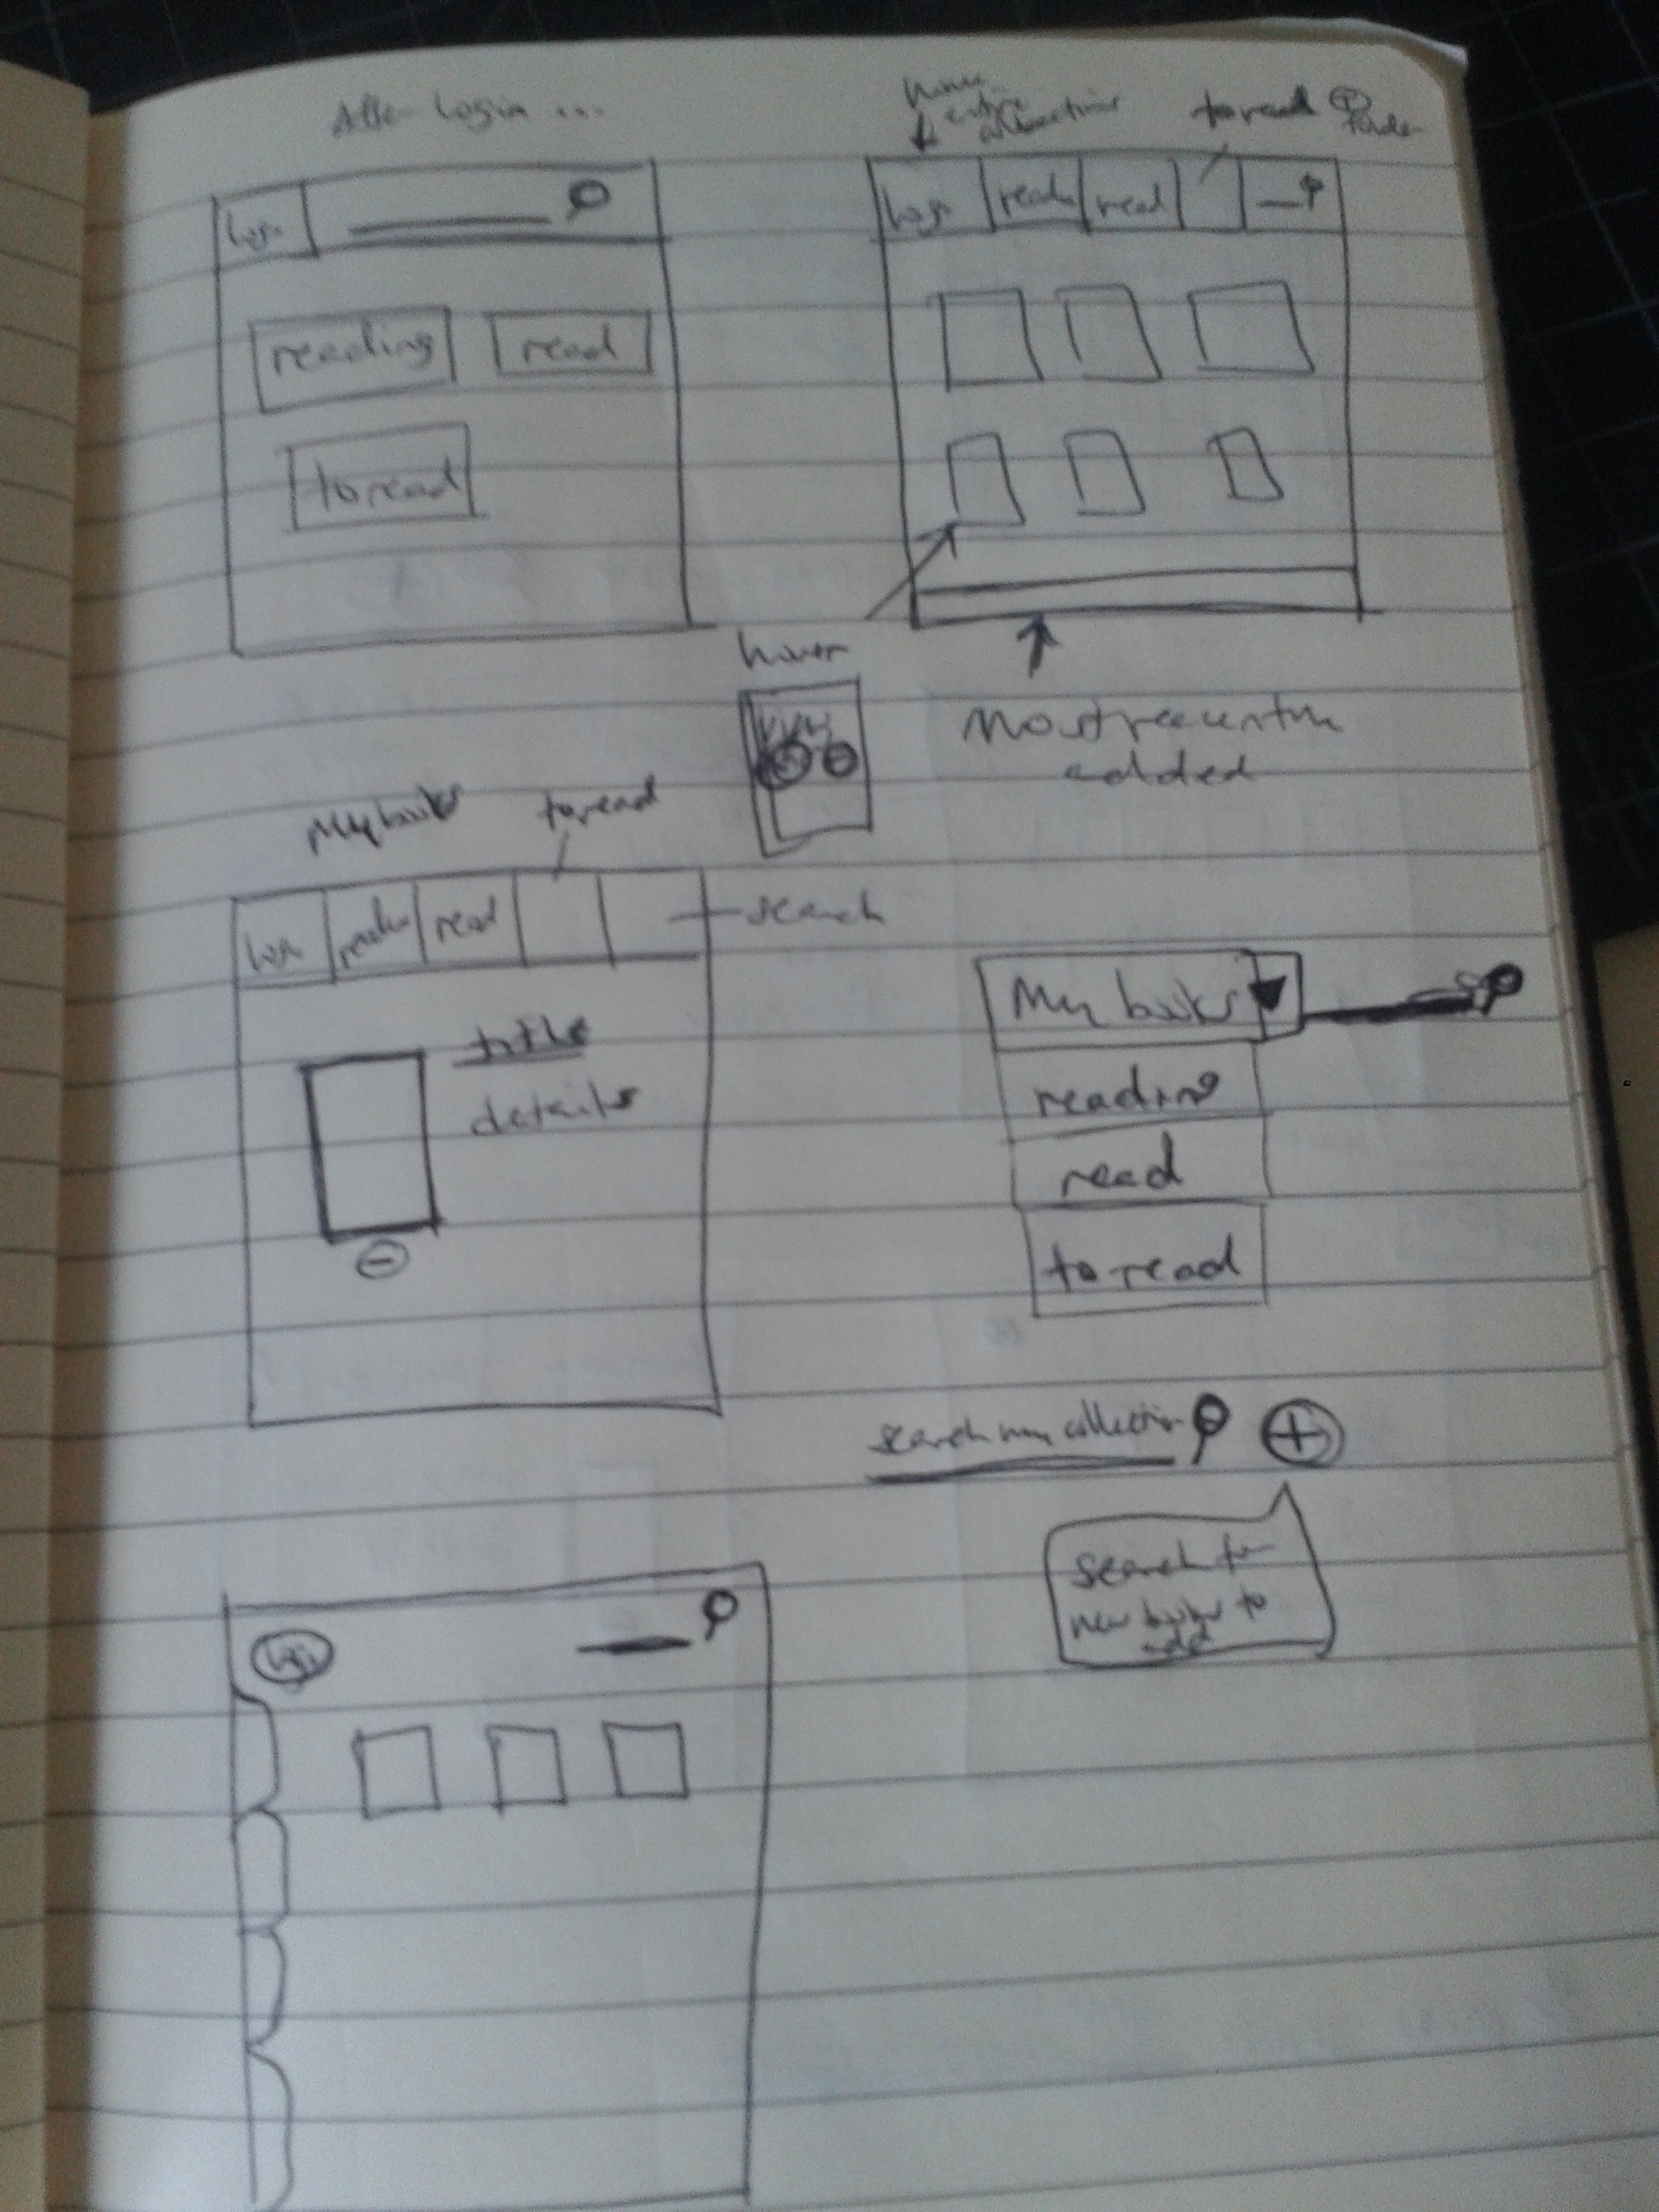 After login ...
home
entire
collection
to read
logo
reading
read
to read
logo
reading
read
hover
Most recently
added
My books
to read
logo
reading
read
search
title
details
My books
reading
read
to read
search my collection
search for
new books to
add
logo